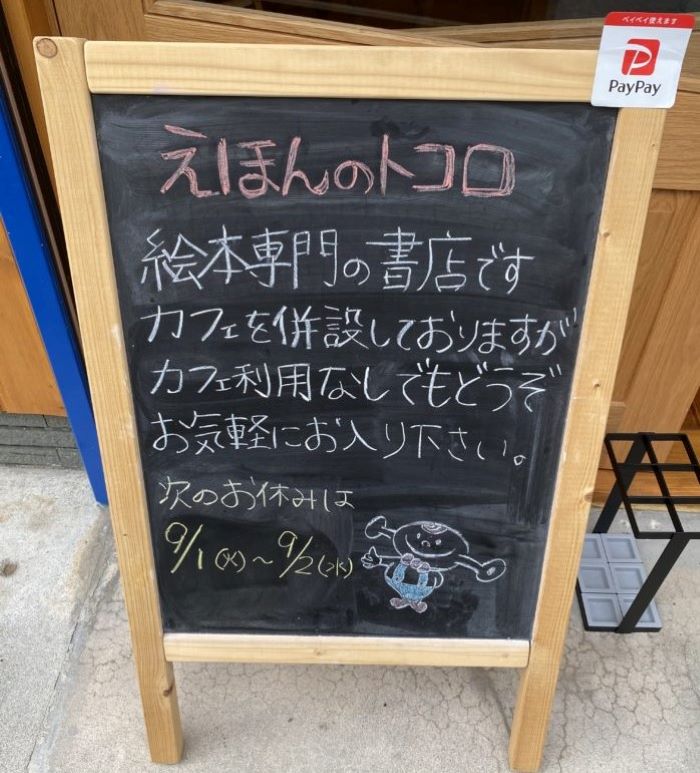 ペイペイ使えます
PayPay
えほんのトコロ
絵本専門の書店です
カフェを併設しておりますが
カフェ利用なしでもどうぞ
お気軽にお入り下さい。
次のお休みは
9/1(火)～9/2(水)